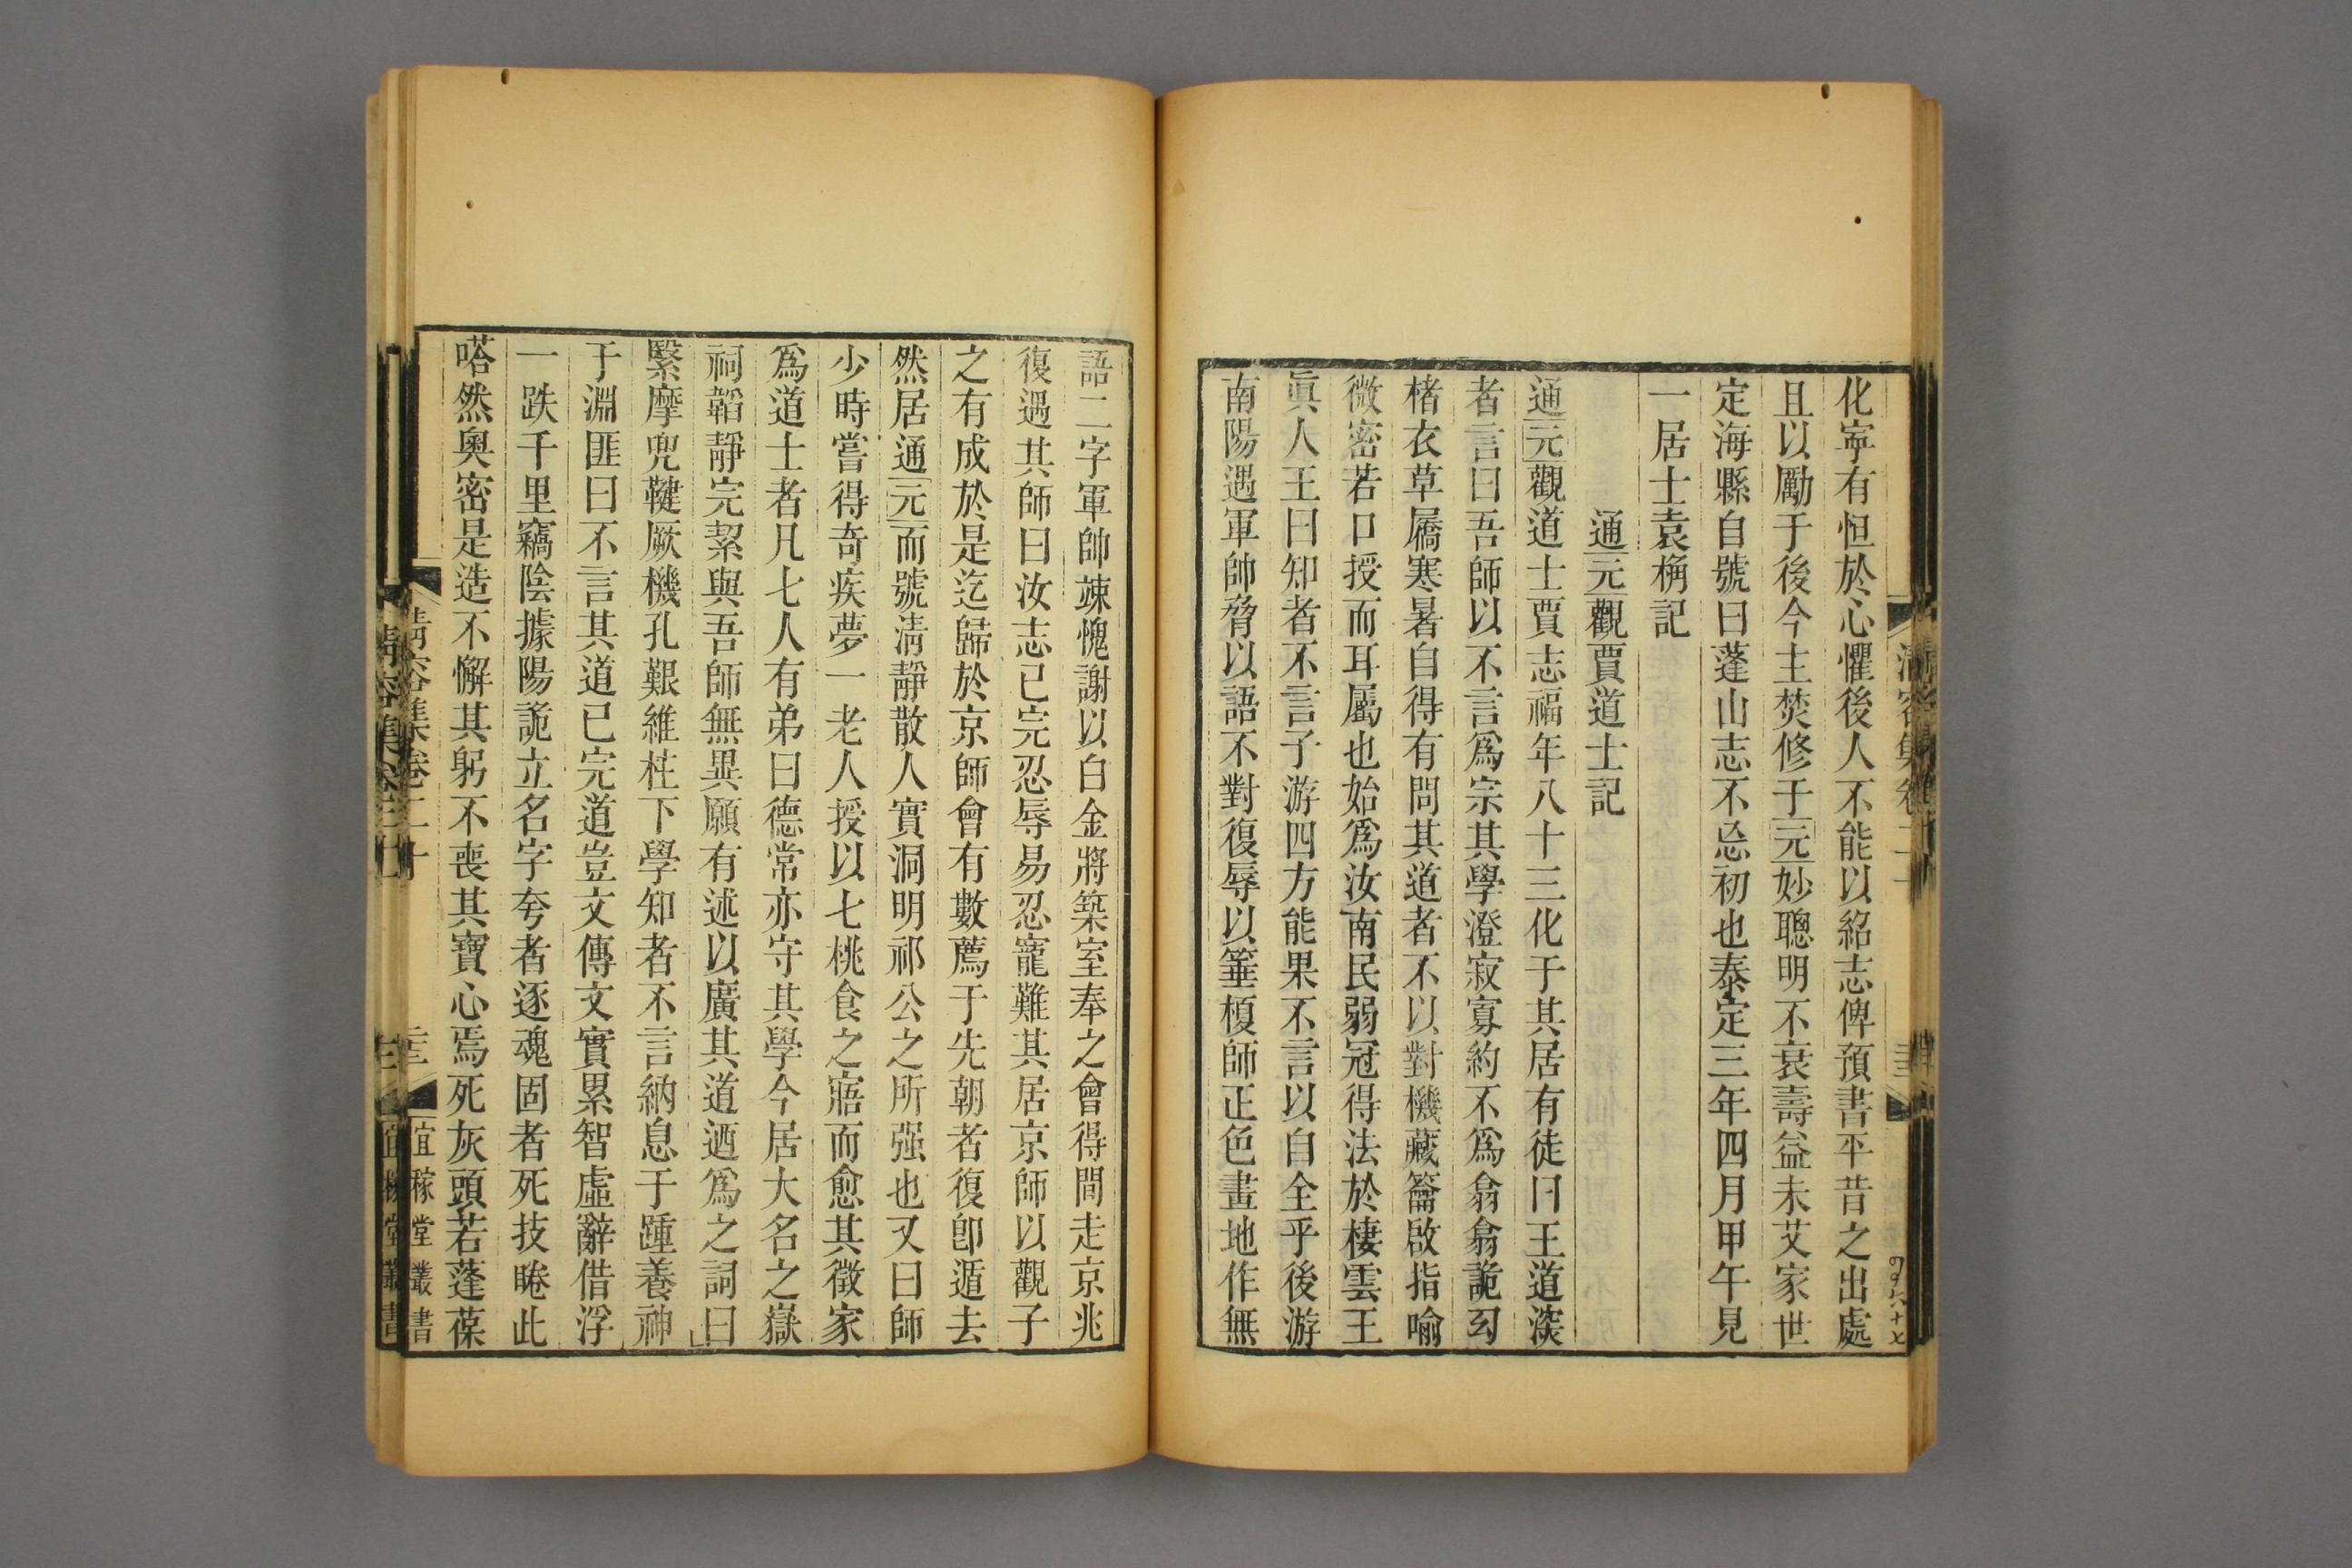 化寧有怛於心懼後人不能以紹志俾預書平昔之出處
且以勵于後今主焚修于元妙聰明不衰壽益未艾家世
定海縣自號曰蓬山志不忘初也泰定三年四月甲午見
一居士袁桷記
通元觀賈道士記
通元觀道士賈志福年八十三化于其居有徒曰王道淡
者言曰吾師以不言爲宗其學澄寂寡約不爲翕翕詭匃
楮衣草屩寒暑自得有問其道者不以對機藏籥啟指喻
微密若口授而耳屬也始爲汝南民弱冠得法於棲雲王
眞人王曰知者不言子游四方能果不言以自全乎後游
南陽遇軍帥脅以語不對復辱以箠榎師正色畫地作無
語二字軍帥竦愧謝以白金將築室奉之會得間走京兆
復遇其師曰汝志已完忍辱易忍寵難其居京師以觀子
之有成於是迄歸於京師會有數薦于先朝者復卽遁去
然居通元而號淸靜散人實洞明祁公之所强也又曰師
少時嘗得奇疾夢一老人授以七桃食之寤而愈其徵家
爲道士者凡七人有弟曰德常亦守其學今居大名之嶽
祠韜靜完絜與吾師無異願有述以廣其道迺爲之詞曰
繄摩兜鞬厥機孔艱維柱下學知者不言納息于踵養神
于淵匪曰不言其道已完道豈文傳文實累智虛辭借浮
一跌千里竊陰據陽詭立名字夸者逐魂固者死技睠此
嗒然奧密是造不懈其躬不喪其寶心焉死灰頭若蓬葆
清容集卷二十
宜稼堂叢書